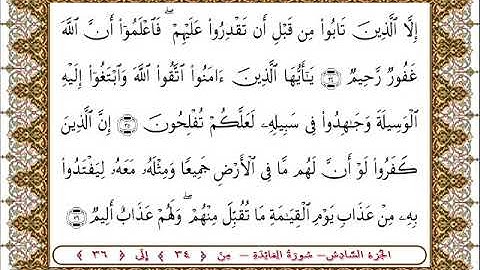 إِلَّا ٱلَّذِينَ تَابُوا۟ مِن قَبْلِ أَن تَقْدِرُوا۟ عَلَيْهِمْ ۖ فَٱعْلَمُوٓا۟ أَنَّ ٱللَّهَ
غَفُورٌ رَّحِيمٌ ﴿٣٤﴾ يَـٰٓأَيُّهَا ٱلَّذِينَ ءَامَنُوا۟ ٱتَّقُوا۟ ٱللَّهَ وَٱبْتَغُوٓا۟ إِلَيْهِ
ٱلْوَسِيلَةَ وَجَـٰهِدُوا۟ فِى سَبِيلِهِۦ لَعَلَّكُمْ تُفْلِحُونَ ﴿٣٥﴾ إِنَّ ٱلَّذِينَ
كَفَرُوا۟ لَوْ أَنَّ لَهُم مَّا فِى ٱلْأَرْضِ جَمِيعًا وَمِثْلَهُۥ مَعَهُۥ لِيَفْتَدُوا۟
بِهِۦ مِنْ عَذَابِ يَوْمِ ٱلْقِيَـٰمَةِ مَا تُقُبِّلَ مِنْهُمْ ۖ وَلَهُمْ عَذَابٌ أَلِيمٌ ﴿٣٦﴾
الجزء السادس – سورة المائدة – من ﴿ ٣٤ ﴾ إلى ﴿ ٣٦ ﴾